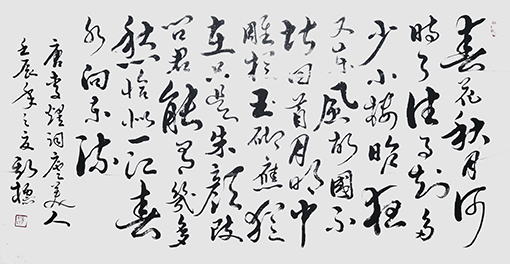 春花秋月何
時了往事知多
少小樓昨夜
又東風故國不
堪回首月明中
雕欄玉砌應猶
在只是朱顏改
問君能有幾多
愁恰似一江春
水向東流
唐李煜詞虞美人
壬辰年之夏